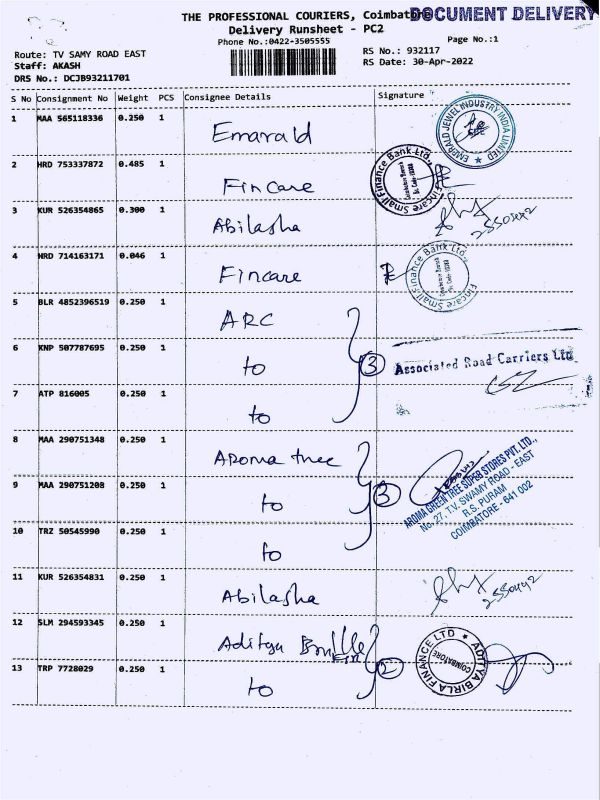 THE PROFESSIONAL COURIERS, Coimbatore
DOCUMENT DELIVERY
Delivery Runsheet - PC2
Phone No.:0422-3505555
Page No.:1
Route: TV SAMY ROAD EAST
Staff: AKASH
DRS No.: DCJB93211701
RS No.: 932117
RS Date: 30-Apr-2022
S No Consignment No Weight PCS Consignee Details Signature
1 MAA 565118336 0.250 1 Emarald
EMERALD JEWEL INDUSTRY INDIA LIMITED
2 HRD 753337872 0.485 1 Fincare
Fincare Small Finance Bank Ltd.,
3 KUR 526354865 0.300 1 Abilasha
4 HRD 714163171 0.046 1 Fincare
Fincare Small Finance Bank Ltd.,
5 BLR 4852396519 0.250 1 ARC
6 KNP 507787695 0.250 1 to 3
Associated Road Carriers Ltd
7 ATP 816005 0.250 1 to
8 MAA 290751348 0.250 1 Aroma tree
9 MAA 290751208 0.250 1 to 3
AROMA GREEN TREE SUPER STORES PVT. LTD.,
No. 27, T.V. SWAMY ROAD - EAST
R.S. PURAM
COIMBATORE - 641 002
10 TRZ 50545990 0.250 1 to
11 KUR 526354831 0.250 1 Abilasha
12 SLM 294593345 0.250 1 Aditya
13 TRP 7728029 0.250 1 to 2
ADITYA BIRLA FINANCE LTD
COIMBATORE